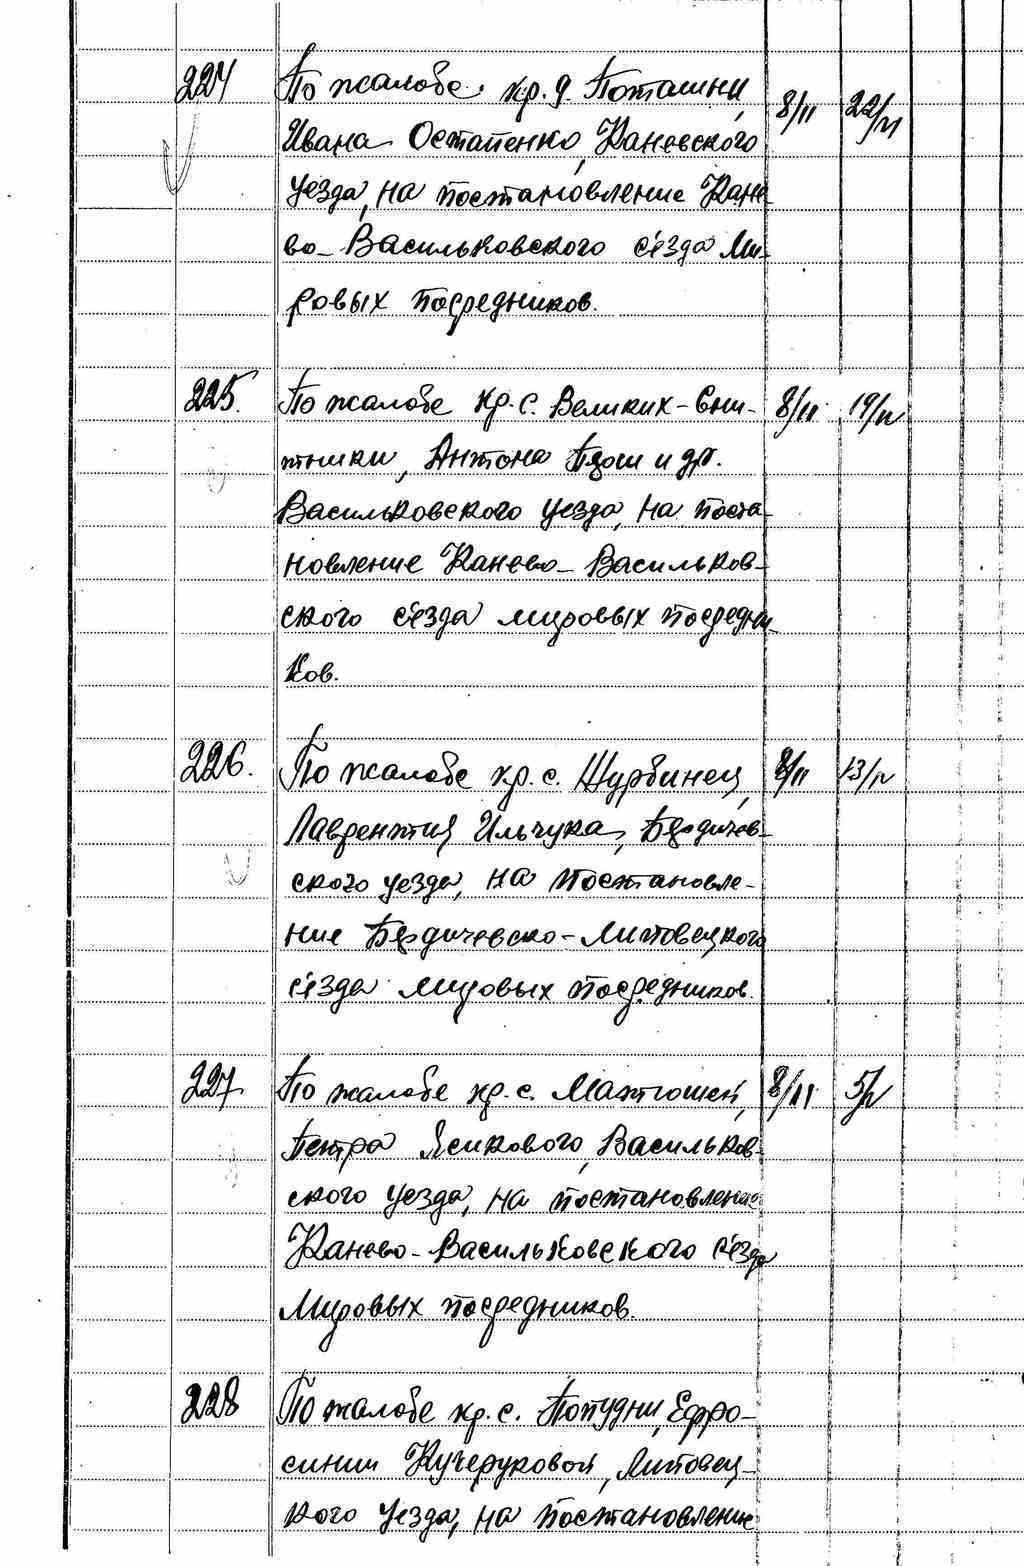 224 По жалобе кр. д. Поташни, 8/II 22/VI
Ивана Остапенко, Каневского
уезда, на постановление Кане-
во-Васильковского с'езда Ми-
ровых Посредников.
225. По жалобе кр. с. Великих-Сни- 8/II 19/IV
тынки, Антона и др.
Васильковского уезда, на поста-
новление Канево-Васильков-
ского с'езда мировых посредни-
ков.
226. По жалобе кр. с. Журбинец, 8/II 13/IV
Лаврентия Ильчука, Бердичев-
ского уезда, на постановле-
ние Бердичевско-Липовецкого
с'езда мировых посредников.
227 По жалобе кр. с. Матюшей, 8/II 5/IV
Петра Ясикового, Васильков-
ского уезда, на постановление
Канево-Васильковского с'езда
Мировых посредников.
228 По жалобе кр. с. Попудни, Ефро-
синии Кучеруковой, Липовец-
кого уезда, на постановление